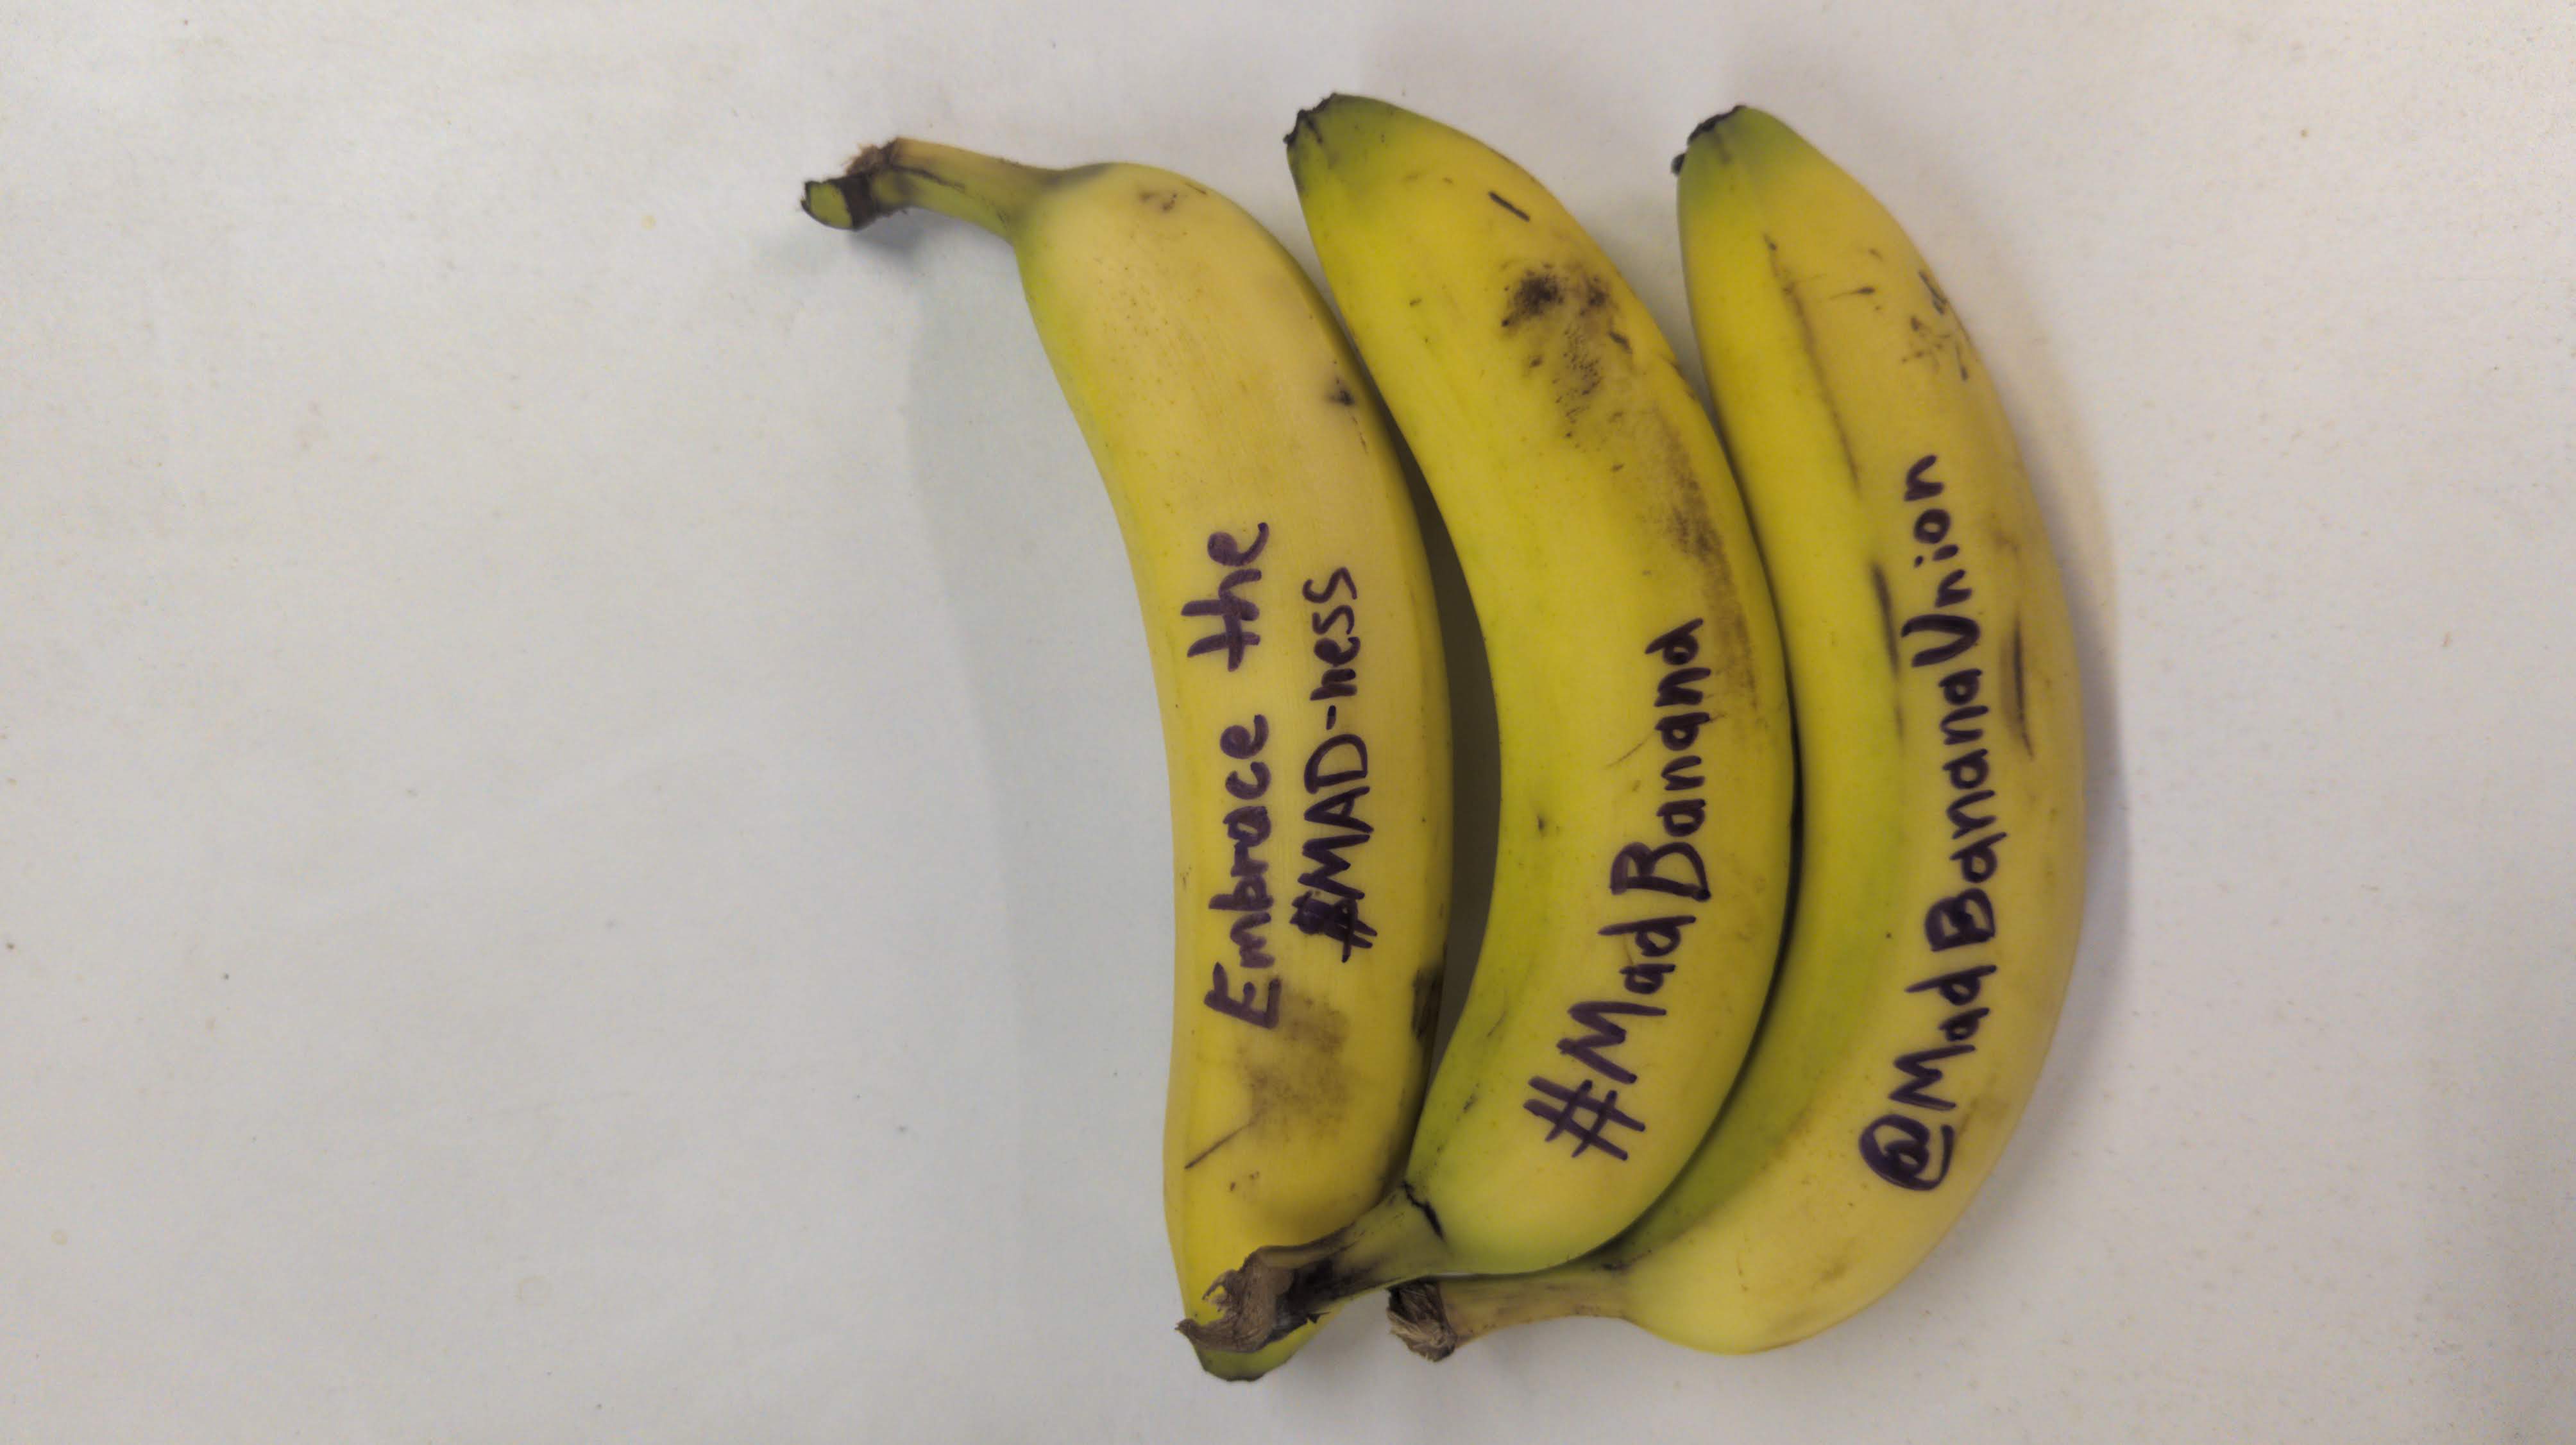 Embrace the
#MAD-ness
#MadBanana
@MadBananaUnion